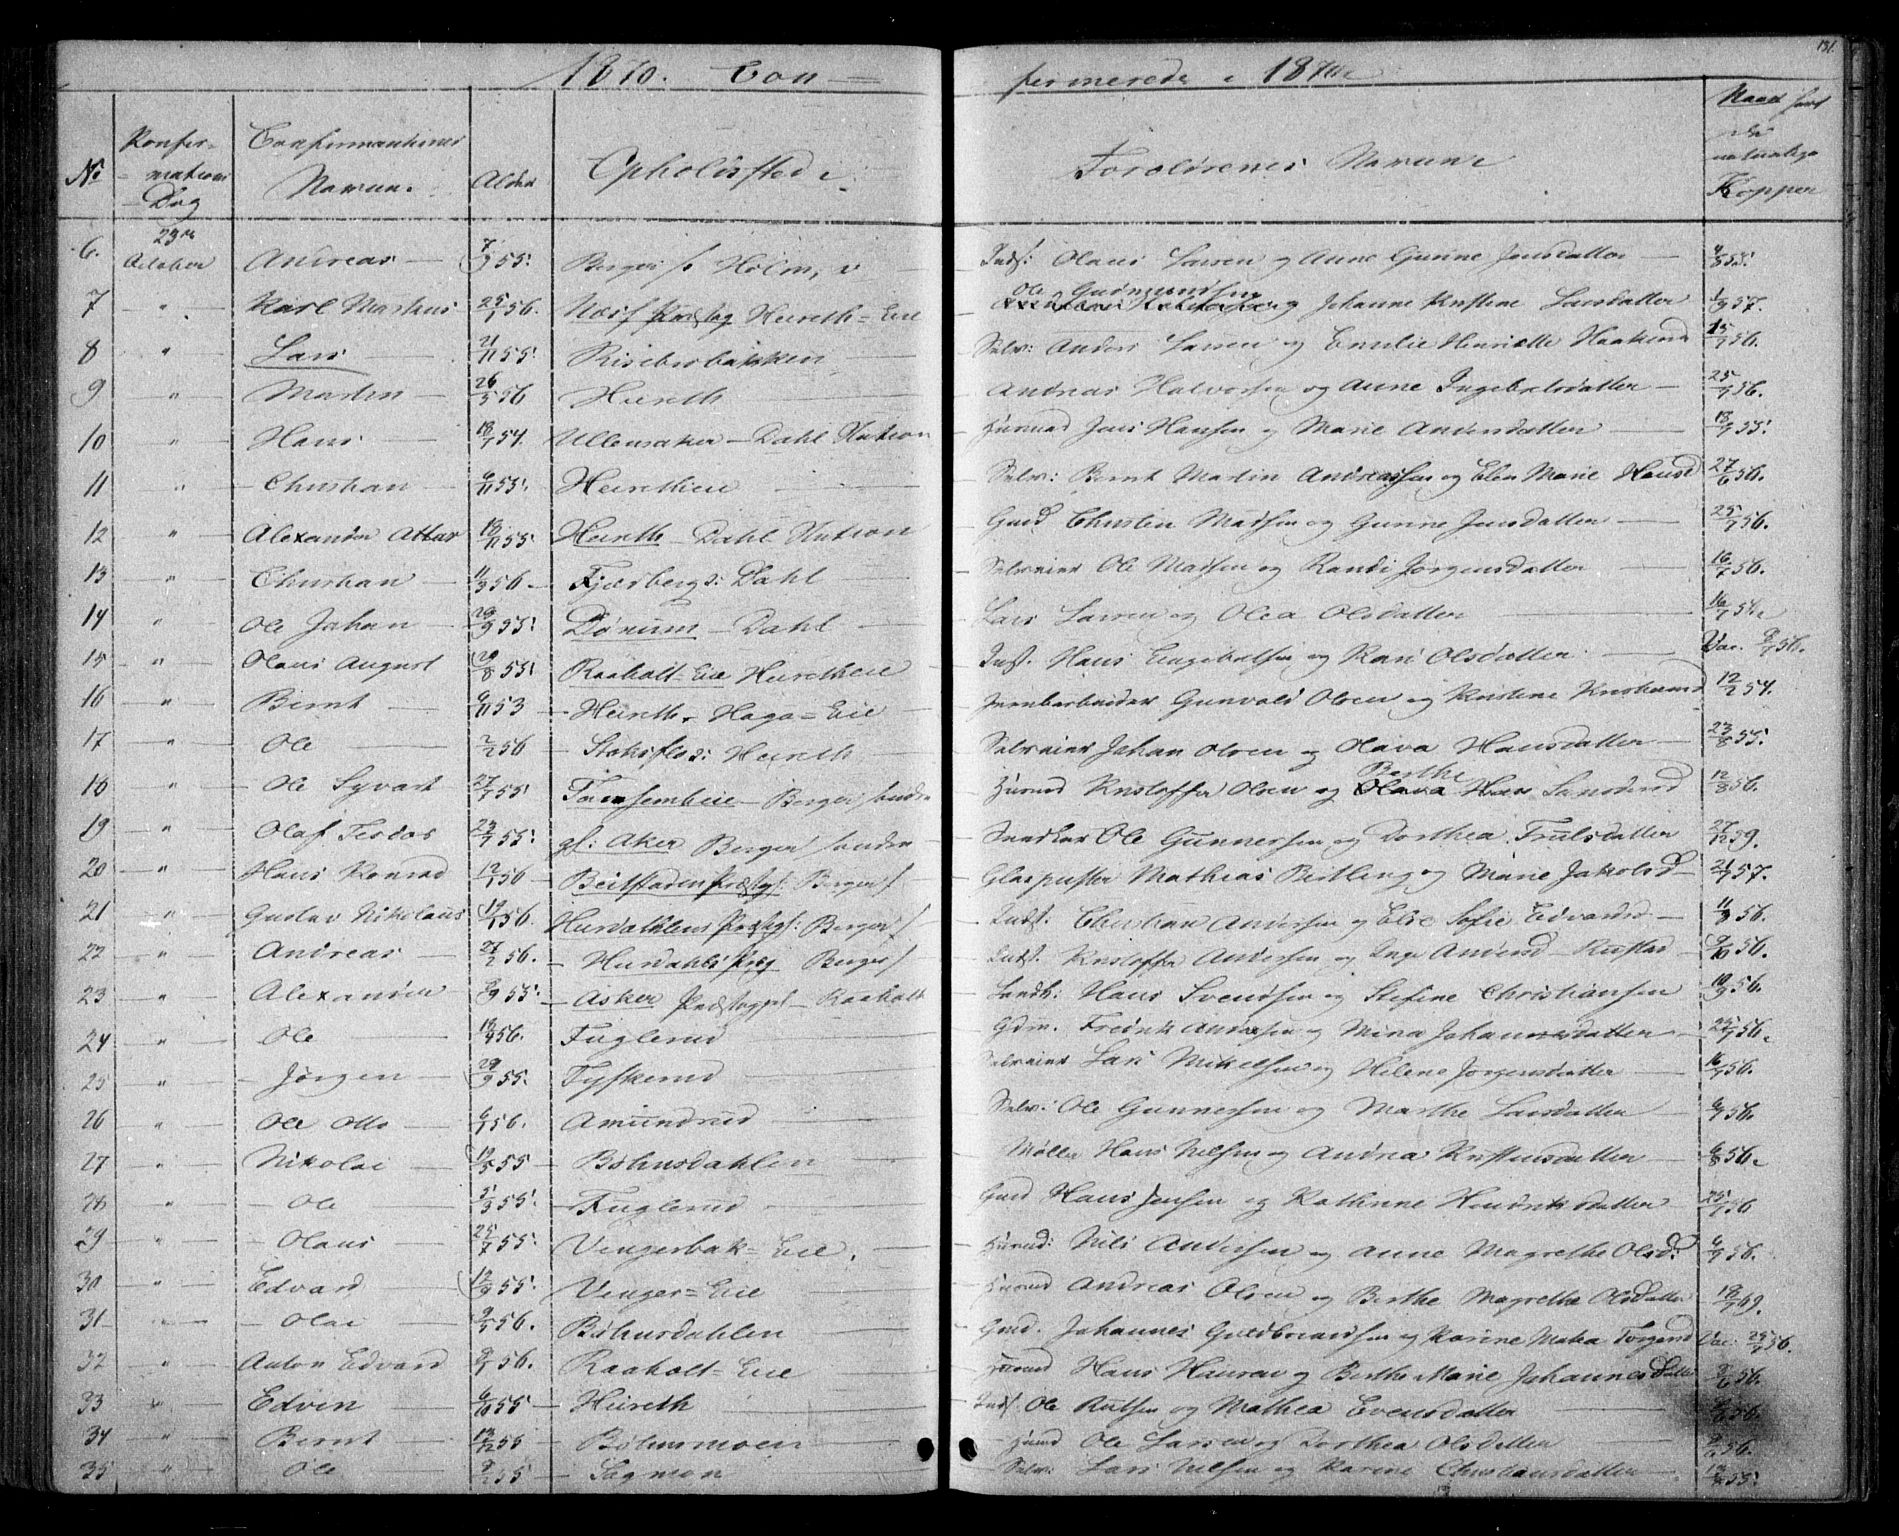 131.
1870. Con=
firmerede i 1870
No
Konfir-
mations
Dag
Confirmanternes
Navne.
Alder
Opholdssted
Forældrenes Navne
Naar havt
de
naturlige
Kopper
6. 23de October Andreas 7/9 55. Berger s. Holm, Inds. Olaus Larsen og Anne Gunne Jensdatter 4/8 55.
7 " Karl Markus 25/1 56. Næs Præstg Heireth=Eie Ole Gudmundsen og Johanne Kristine Larsdatter 1/9 57.
8 " Lars 21/11 55. Riseberbakken Selv: Anders Larsen og Emelie Henriette Haakensd 15/7 56.
9 " Martin 26/5 56 Heireth Andreas Halvorsen og Anne Ingebretsdatter 25/7 56.
10 " Hans 18/7 54. Ullensaker - Dahl Station Husmd Jens Hansen og Marie Andersdatter 18/7 55.
11 " Christian 6/11 55. Heiretheie Selv: Bernt Martin Andreassen og Elen Marie Hansd 27/6 56.
12 " Alexander Attar 18/11 55. Heireth - Dahl Station Gmd Christen Madsen og Gunne Jensdatter 25/7 56.
13 " Christian 11/3 56. Fjærberg: Dahl Selveier Ole Madsen og Randi Jørgensdatter 16/7 56.
14 " Ole Johan 29/9 55. Dønum - Dahl Lars Larsen og Olea Olsdatter 16/7 56.
15 " Olaus August 29/8 55. Raaholt=Eie Heiretheie Inds. Hans Engebretsen og Kari Olsdatter Vac. 9/7 56.
16 " Bernt 6/11 53 Heireth, Haga=Eie Jernbarbeider Gunvald Olsen og Kristine Kristiansd 12/2 54.
17 " Ole 2/2 56 Stoksflos: Heireth Selveier Johan Olsen og Olava Hansdatter 23/8 55.
18 " Ole Syvert 27/7 55. Tømsembeie Berger søndre Husmd Kristoffer Olsen og Berthe Larsdatter 12/8 56.
19 " Olaf Teodor 23/7 55. gl: Aker Berger søndre Snedker Ole Gunnersen og Dorthea Trulsdatter 27/12 59.
20 " Hans Konrad 12/1 56 Beitstaden Præstgj: Berger s Glaspuster Mathias Beitling og Marie Jakobsd 21/7 57.
21 " Gustav Nikolaus 19/1 56. Hurdahlens Præstgj: Berger s Inds. Christian Andersen og Else Sofie Edvardsd 11/3 56.
22 " Andreas 27/2 56. Hurdahls Præg Berger s Inds. Kristoffer Andersen og Inge Andersd Rustad 9/10 56.
23 " Alexander 8/9 55. Asker Præstegjel - Raaholt Landh: Hans Svendsen og Stefine Christiansen 10/9 56.
24 " Ole 18/4 56. Fuglerud Gdm. Fredrik Andersen og Mina Johannesdatter 25/7 56.
25 " Jørgen 29/9 55. Tyskerud Selveier Lars Mikelsen og Helene Jørgensdatter 16/7 56.
26 " Ole Otto 6/1 56. Amundrud Selv: Ole Gunnersen og Marthe Larsdatter 6/9 56.
27 " Nikolai 19/5 55 Bøhnsdahlen Møller Hans Nilsen og Andrea Kristensdatter 6/8 56.
28 " Ole 5/3 55. Fuglerud Gmd Hans Jensen og Kathrine Hendriksdatter 25/7 56
29 " Olaus 25/7 55. Vengerbak=Eie. Husmd: Nils Andersen og Anne Magrethe Olsd: 6/9 56.
30 " Edvard 12/9 55. Venger=Eie Husmd Andreas Olsen og Berthe Magrethe Olsdatter 18/7 69.
31 " Olai 9/1 56. Bøhnsdahlen Gmd. Johannes Guldbrandsen og Karine Maria Torgersd Vac: 25/7 56.
32 " Anton Edvard 9/1 56. Raaholt=Eie Husmd Hans Hansen og Berthe Marie Johannesdatter 9/6 56.
33 " Edvin 6/10 55 Heireth Inds. Ole Knutsen og Mathea Evensdatter 56.
34 " Bernt 13/12 55 Bøhnsmoen Husmd Ole Larsen og Dorthea Olsdatter 9/6 56.
35 " Ole 9/2 55 Sagmoen Selv: Lars Nilsen og Karine Christiansdatter 55.